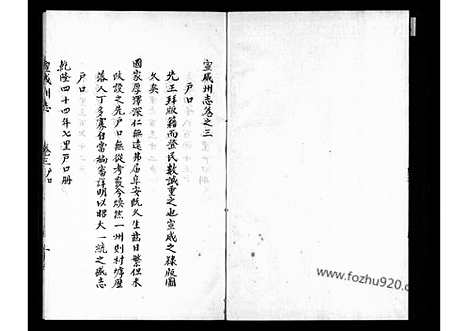 宣威州志卷之三
戶口
先王拜版籍而登民數誠重之也宣威之隸版圖
久矣
國家厚澤深仁無遠弗屆阜安既久生齒日繁但未
改設之先戶口無從考覈今煥然一州則村墟歷
落人丁多寡自當稽審詳明以昭大一統之盛志
戶口
乾隆四十四年七里戶口冊
宣威州志
卷三戶口
https://www.fozhu920.com/